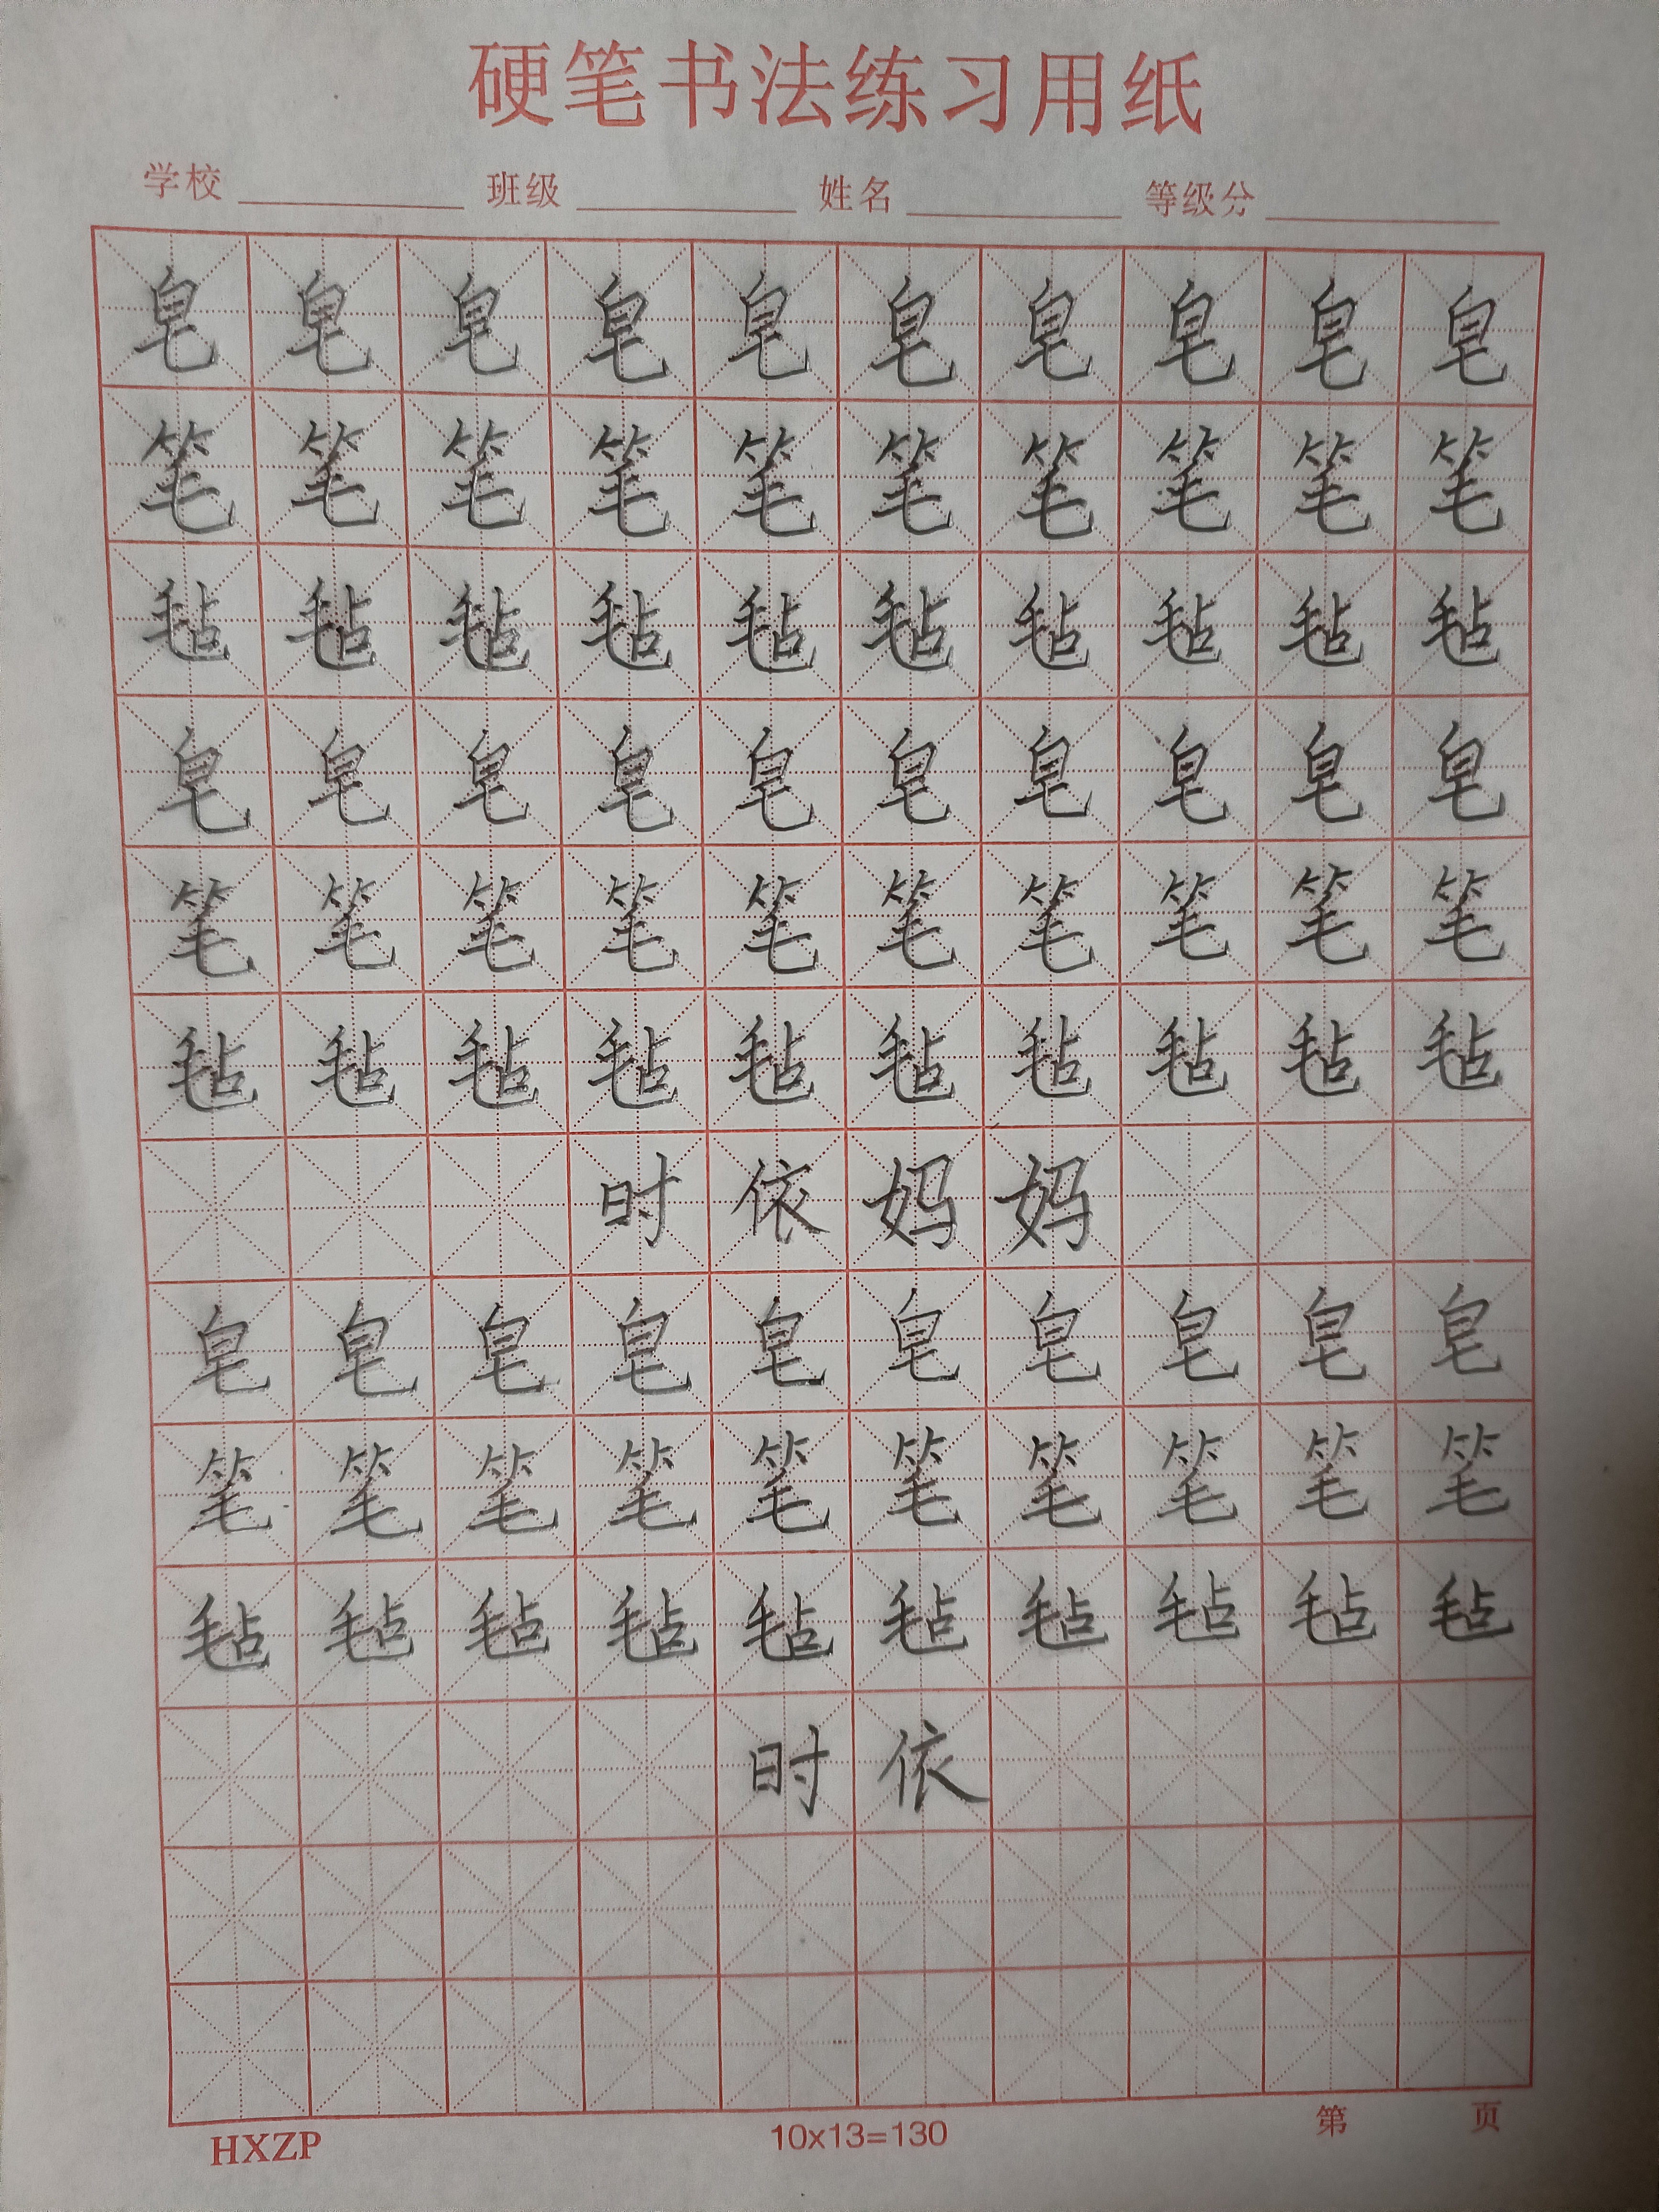 硬笔书法练习用纸
学校 班级 姓名 等级分
皂皂皂皂皂皂皂皂皂皂
笔笔笔笔笔笔笔笔笔笔
毡毡毡毡毡毡毡毡毡毡
皂皂皂皂皂皂皂皂皂皂
笔笔笔笔笔笔笔笔笔笔
毡毡毡毡毡毡毡毡毡毡
时依妈妈
皂皂皂皂皂皂皂皂皂皂
笔笔笔笔笔笔笔笔笔笔
毡毡毡毡毡毡毡毡毡毡
时依
HXZP 10x13=130 第 页